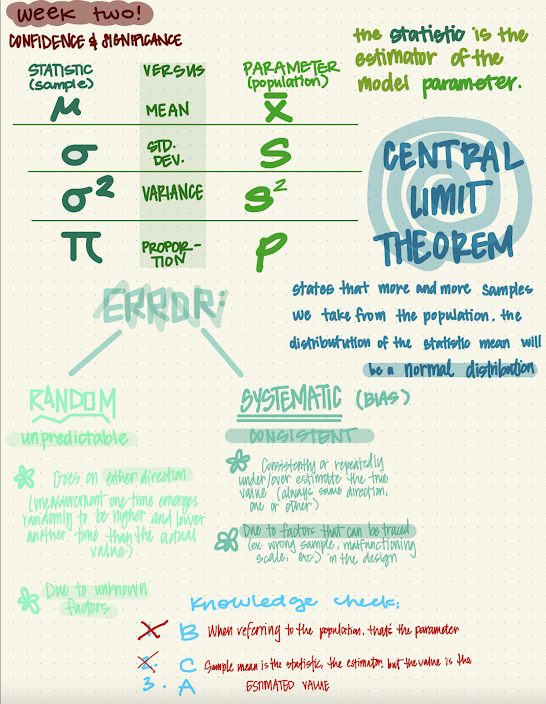 week two!
CONFIDENCE & SIGNIFICANCE
the statistic is the
estimator of the
model parameter.
STATISTIC
(sample)
VERSUS
PARAMETER
(population)
μ MEAN x̄
σ STD. DEV. S
σ² VARIANCE s²
π PROPOR-TION p
CENTRAL
LIMIT
THEOREM
states that more and more samples
we take from the population, the
distribututon of the statistic mean will
be a normal distribution
ERROR:
RANDOM
unpredictable
Goes on either direction
(measurement one time emerges
randomly to be higher and lower
another time than the actual
value.)
Due to unknown
factors
SYSTEMATIC (BIAS)
CONSISTENT
Consistently or repeatedly
under/over estimate the true
value (always same direction,
one or other)
Due to factors that can be traced
(ex. wrong sample, malfunctioning
scale, etc.) in the design
Knowledge check:
1. B When referring to the population, thats the parameter
2. C Sample mean is the statistic, the estimator, but the value is the
3. A ESTIMATED VALUE